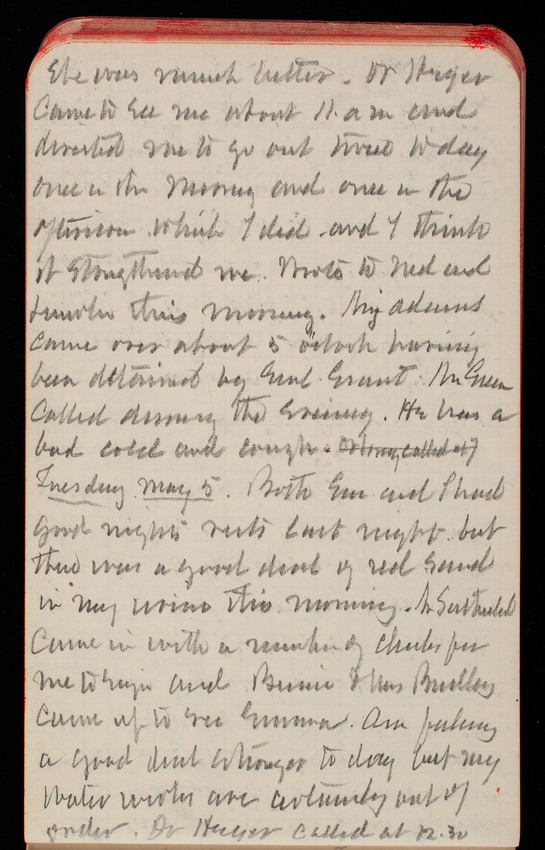 She was much better. Dr Heger
Came to see me about 11 a m and
directed me to go out twice to day
once in the Morning and once in the
afternoon which I did and I think
it strengthened me. Wrote to Ned and
this morning. Adams
came over about 5 o'clock having
been detained by Genl Grant. Mr Green
Called during the Evening. He has a
bad cold and cough. called at 7
Tuesday May 5. Both Em and I had
good nights rests last night but
there was a good deal of red Sand
in my urine this morning. Mr
Came in with a number of checks for
me to sign and & Mrs
Came up to see Emma. Am feeling
a good deal stronger to day but my
Water works are out of
order. Dr Heger called at 12.30